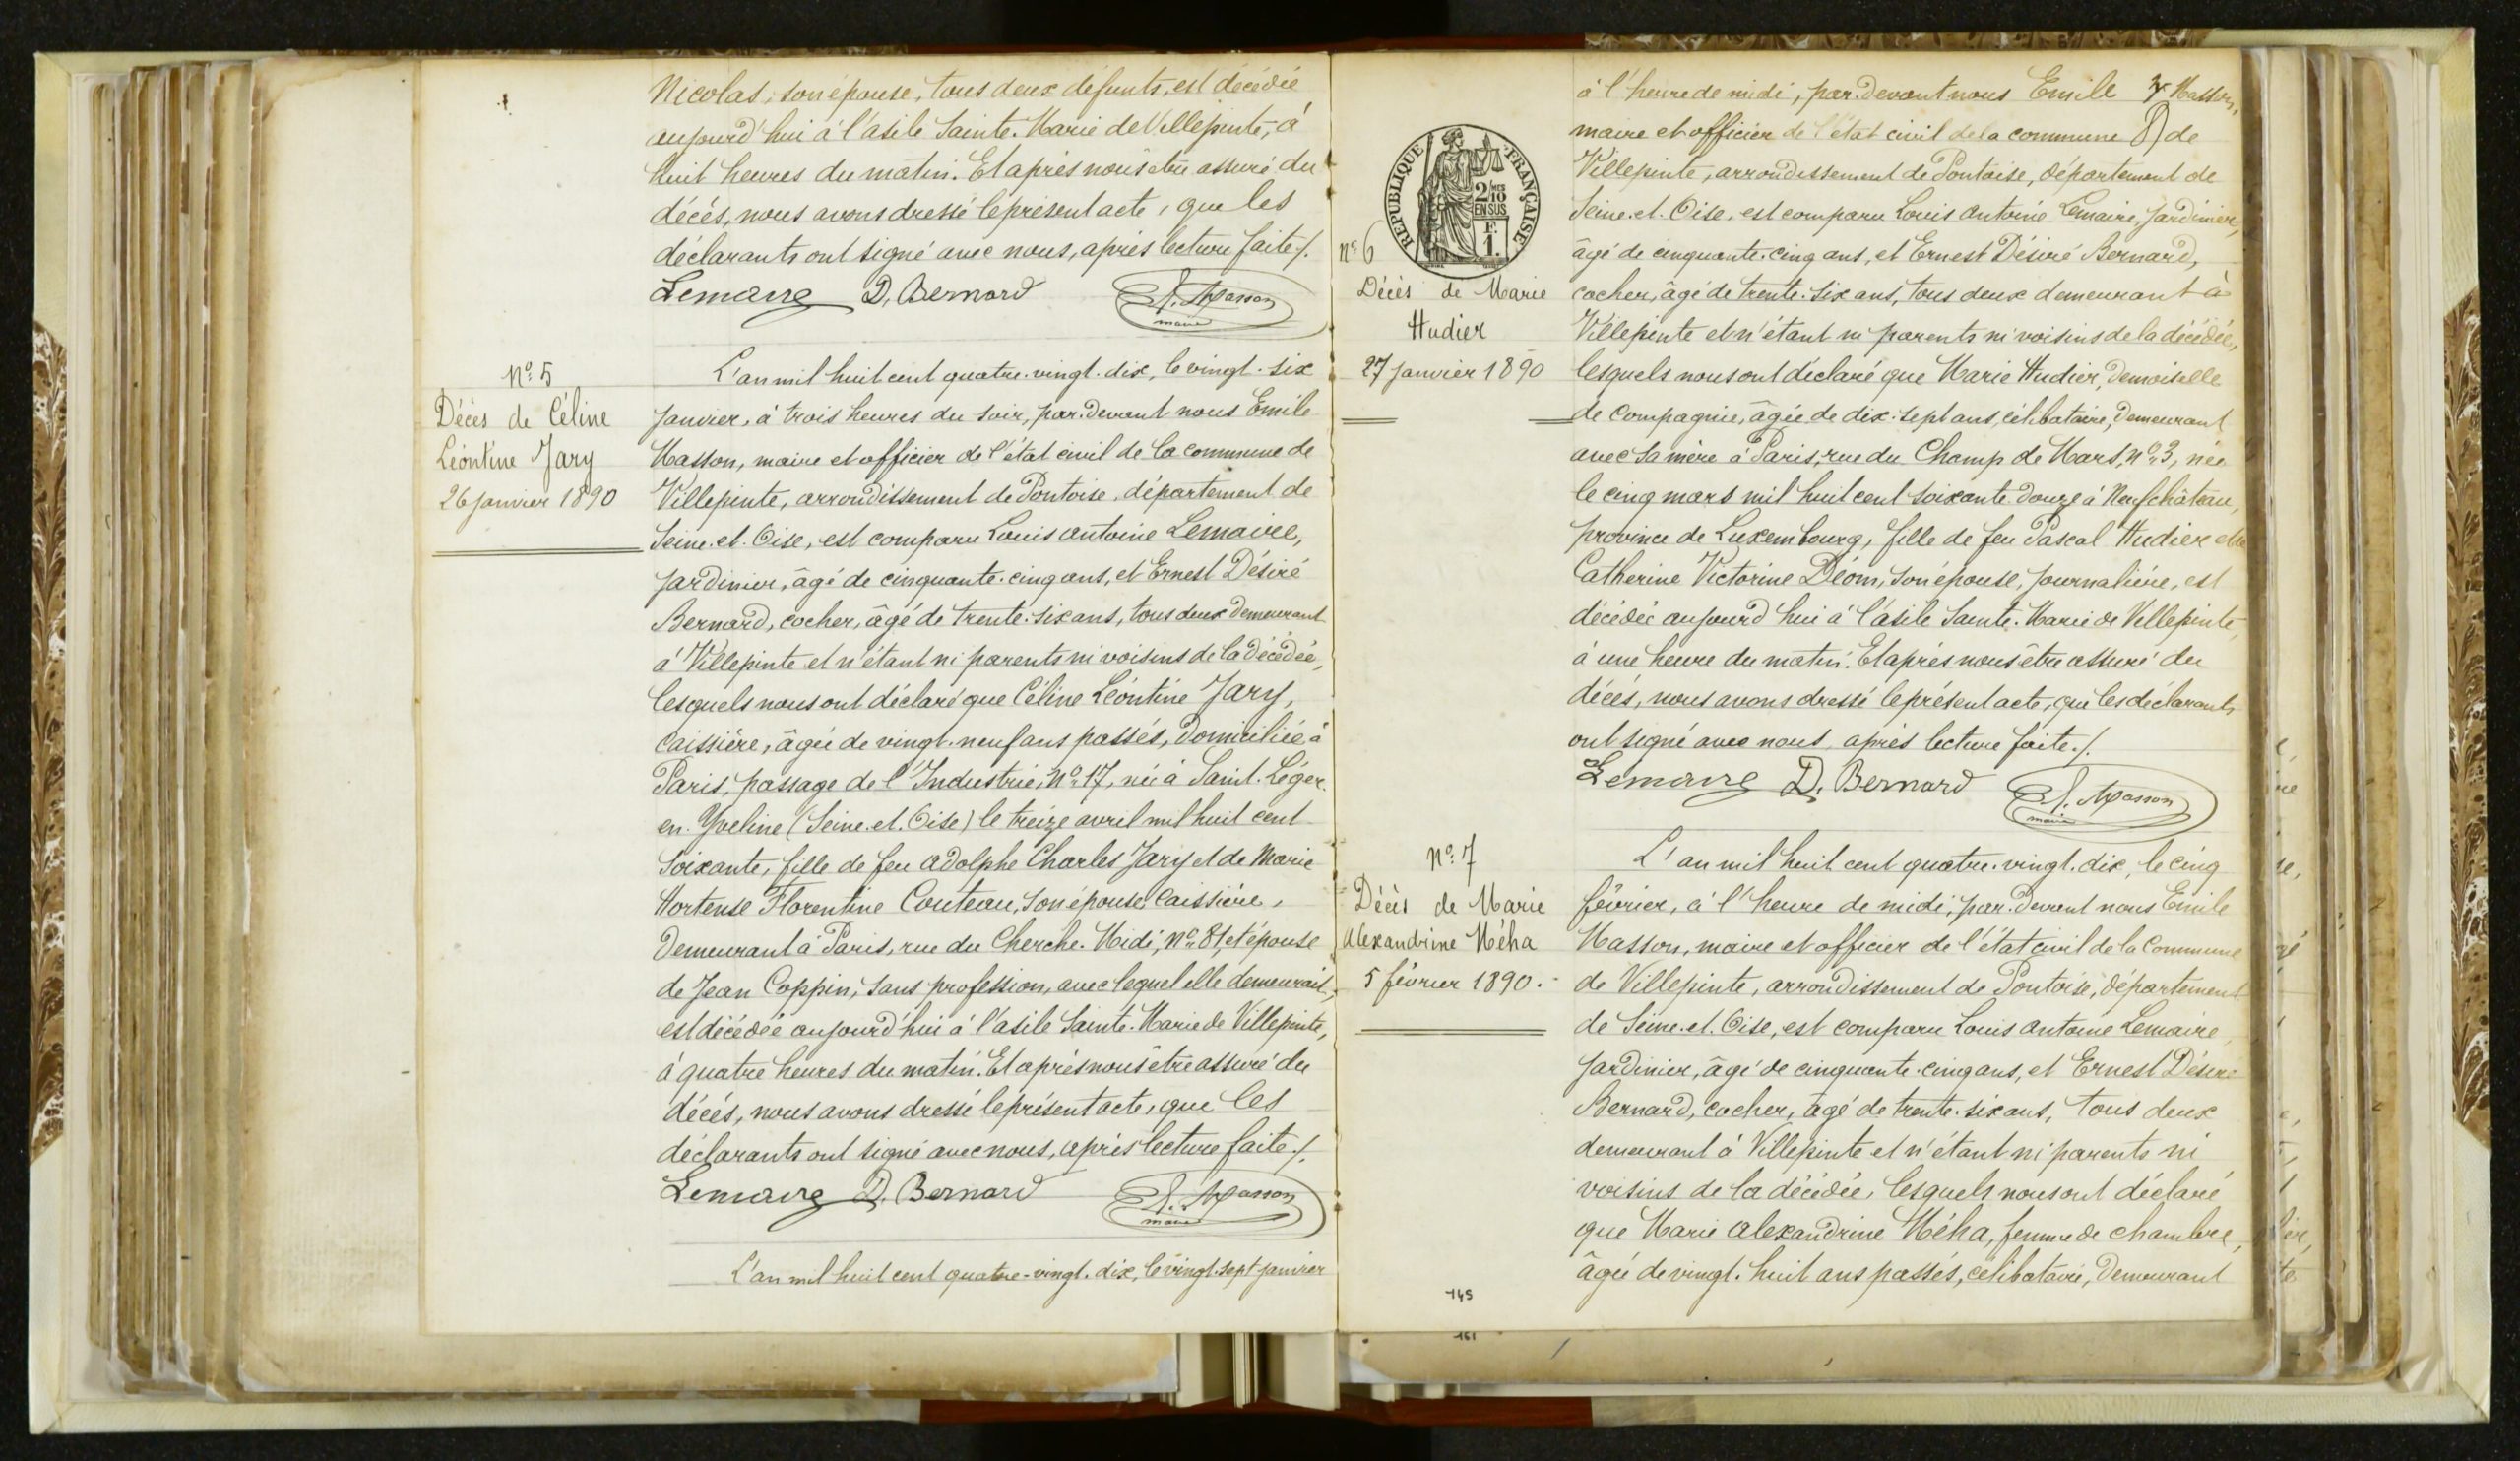 Nicolas, son épouse, tous deux défunts, est décédée
aujourd'hui à l'asile Sainte-Marie de Villepinte, à
huit heures du matin. Et après nous être assuré du
décès, nous avons dressé le présent acte, que les
déclarants ont signé avec nous, après lecture faite./.
Lemaire D. Bernard E. Masson
maire
N° 5
Décès de Céline
Léontine Jary
26 janvier 1890
L'an mil huit cent quatre-vingt-dix, le vingt-six
janvier, à trois heures du soir, par-devant nous Emile
Masson, maire et officier de l'état civil de la commune de
Villepinte, arrondissement de Pontoise, département de
Seine-et-Oise, est comparu Louis Antoine Lemaire,
jardinier, âgé de cinquante-cinq ans, et Ernest Désiré
Bernard, cocher, âgé de trente-six ans, tous deux demeurant
à Villepinte et n'étant ni parents ni voisins de la décédée,
lesquels nous ont déclaré que Céline Léontine Jary,
caissière, âgée de vingt-neuf ans passés, domiciliée à
Paris, passage de l'Industrie, N° 17, née à Saint-Léger-
en-Yveline (Seine-et-Oise) le treize avril mil huit cent
soixante, fille de feu Adolphe Charles Jary et de Marie
Hortense Florentine Couteau, son épouse, caissière,
demeurant à Paris, rue du Cherche-Midi, N° 81, et épouse
de Jean Coppin, sans profession, avec lequel elle demeurait,
est décédée aujourd'hui à l'asile Sainte-Marie de Villepinte,
à quatre heures du matin. Et après nous être assuré du
décès, nous avons dressé le présent acte, que les
déclarants ont signé avec nous, après lecture faite./.
Lemaire D. Bernard E. Masson
maire
L'an mil huit cent quatre-vingt-dix, le vingt-sept janvier
RÉPUBLIQUE FRANÇAISE
2/10 MES
EN SUS
F.
1.
N° 6
Décès de Marie
Hudier
27 janvier 1890
à l'heure de midi, par-devant nous Emile Masson,
maire et officier de l'état civil de la commune de
Villepinte, arrondissement de Pontoise, département de
Seine-et-Oise, est comparu Louis Antoine Lemaire, jardinier,
âgé de cinquante-cinq ans, et Ernest Désiré Bernard,
cocher, âgé de trente-six ans, tous deux demeurant à
Villepinte et n'étant ni parents ni voisins de la décédée,
lesquels nous ont déclaré que Marie Hudier, demoiselle
de compagnie, âgée de dix-sept ans, célibataire, demeurant
avec sa mère à Paris, rue du Champ de Mars, N° 3, née
le cinq mars mil huit cent soixante-douze à Neufchâteau,
province de Luxembourg, fille de feu Pascal Hudier et de
Catherine Victorine Déom, son épouse, journalière, est
décédée aujourd'hui à l'asile Sainte-Marie de Villepinte,
à une heure du matin. Et après nous être assuré du
décès, nous avons dressé le présent acte, que les déclarants
ont signé avec nous, après lecture faite./.
Lemaire D. Bernard E. Masson
maire
N° 7
Décès de Marie
Alexandrine Méha
5 février 1890.
L'an mil huit cent quatre-vingt-dix, le cinq
février, à l'heure de midi, par-devant nous Emile
Masson, maire et officier de l'état civil de la Commune
de Villepinte, arrondissement de Pontoise, département
de Seine-et-Oise, est comparu Louis Antoine Lemaire,
jardinier, âgé de cinquante-cinq ans, et Ernest Désiré
Bernard, cocher, âgé de trente-six ans, tous deux
demeurant à Villepinte et n'étant ni parents ni
voisins de la décédée, lesquels nous ont déclaré
que Marie Alexandrine Méha, femme de chambre,
âgée de vingt-huit ans passés, célibataire, demeurant
145
161